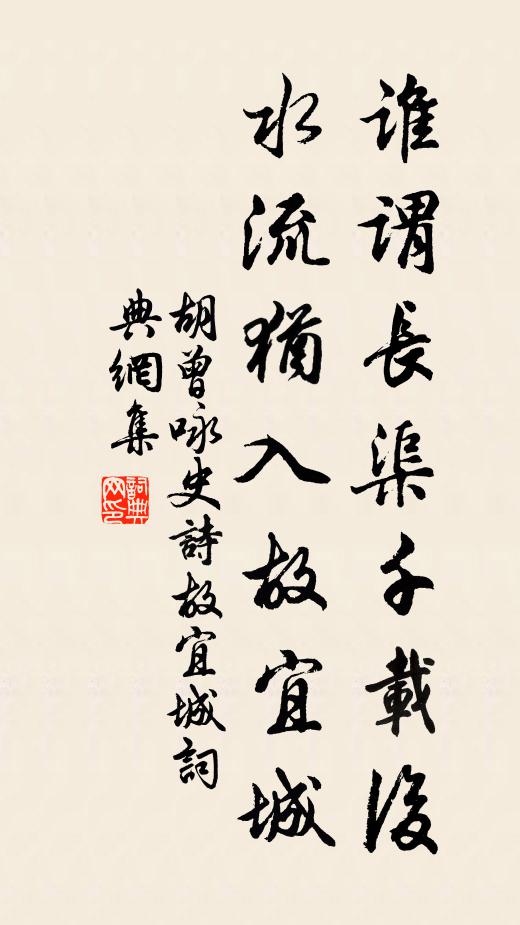 誰謂長渠千載後
水流猶入故宜城
胡曾咏史詩故宜城詞
典網集
詞典网印